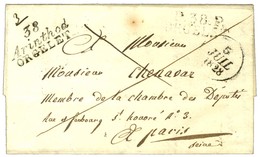 38
Arinthod
ORGELET
5
JUIL
1828
A Monsieur
Monsieur Chenavaz
Membre de la chambre des Députés
rue du faubourg St. honoré No. 3
à paris